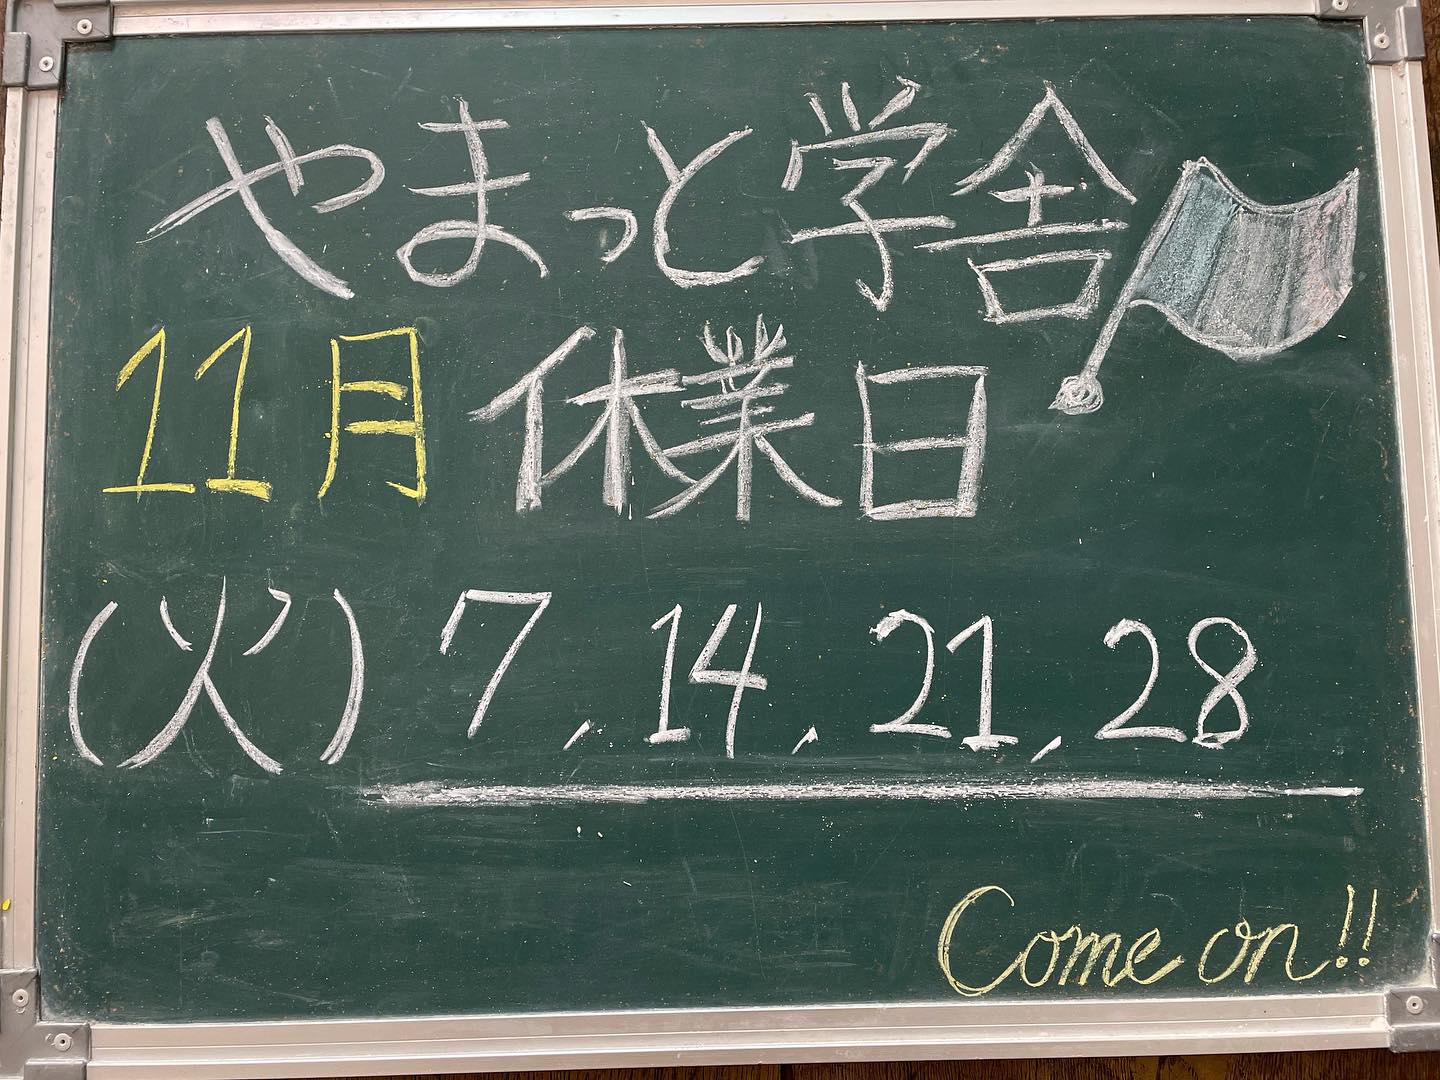 やまっと学舎
11月休業日
(火) 7, 14, 21, 28
Come on!!